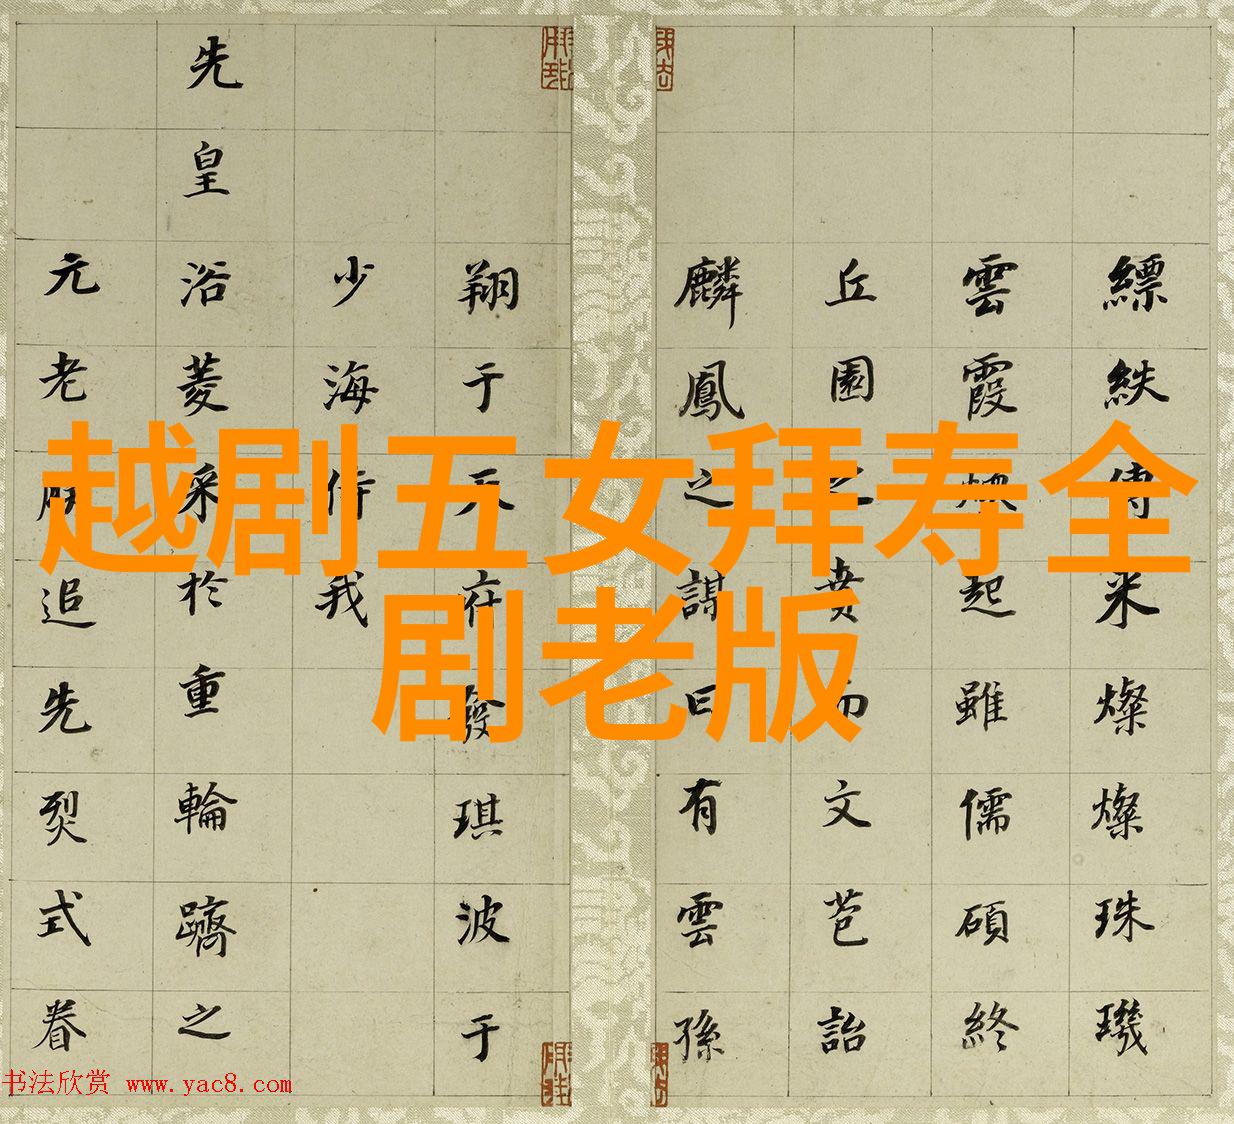 越剧五女拜寿全
剧老版
縹紩傳米燦燦珠璣
雲霞起雖儒碩終
丘園之賁而文芑詒
麟鳳之謀曰有雲孫
翔于天府發琪波于
少海侍我
先皇浴菱采於重輪躋之
元老追先烈式眷
书法欣赏 www.yac8.com